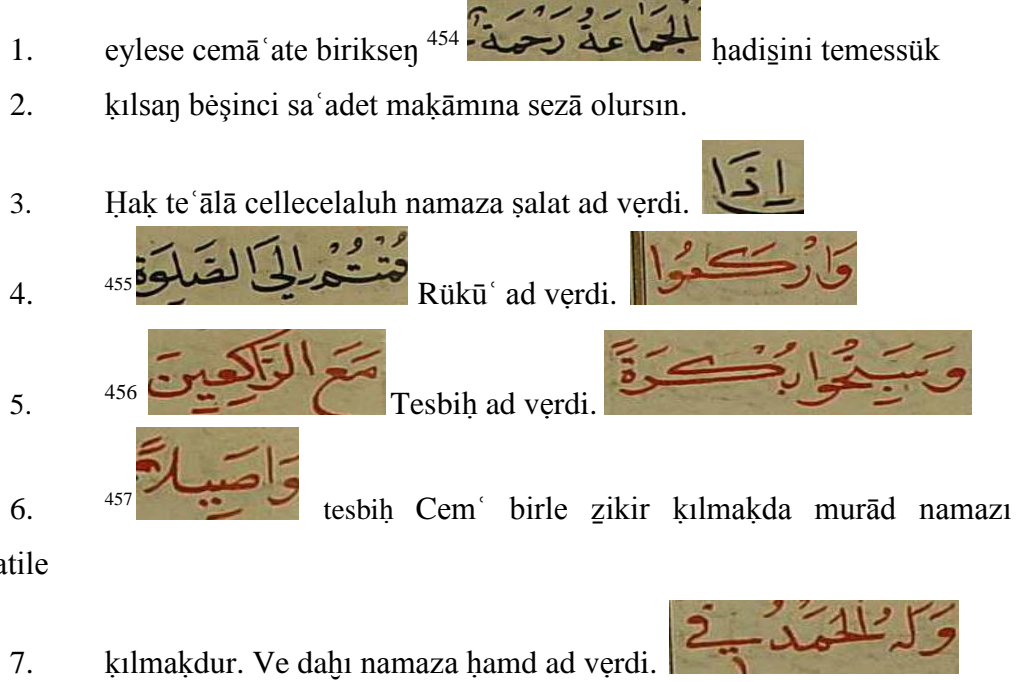 1. eylese cemāʿate birikseŋ ⁴⁵⁴ اَلْجَمَاعَةُ رَحْمَةٌ ḥadis̱ini temessük
2. ḳılsaŋ bėşinci saʿadet maḳāmına sezā olursın.
3. Ḥaḳ teʿālā cellecelaluh namaza ṣalat ad vẹrdi. اِذَا
4. ⁴⁵⁵ قُمْتُمْ اِلَى الصَّلٰوةِ Rükūʿ ad vẹrdi. وَارْكَعُوا
5. ⁴⁵⁶ مَعَ الرَّاكِعِينَ Tesbiḥ ad vẹrdi. وَسَبِّحُوا بُكْرَةً
6. ⁴⁵⁷ وَاَصِيلاً tesbiḥ Cemʿ birle ẕikir ḳılmaḳda murād namazı
atile
7. ḳılmaḳdur. Ve daḫı namaza ḥamd ad vẹrdi. وَلَهُ الْحَمْدُ فِي